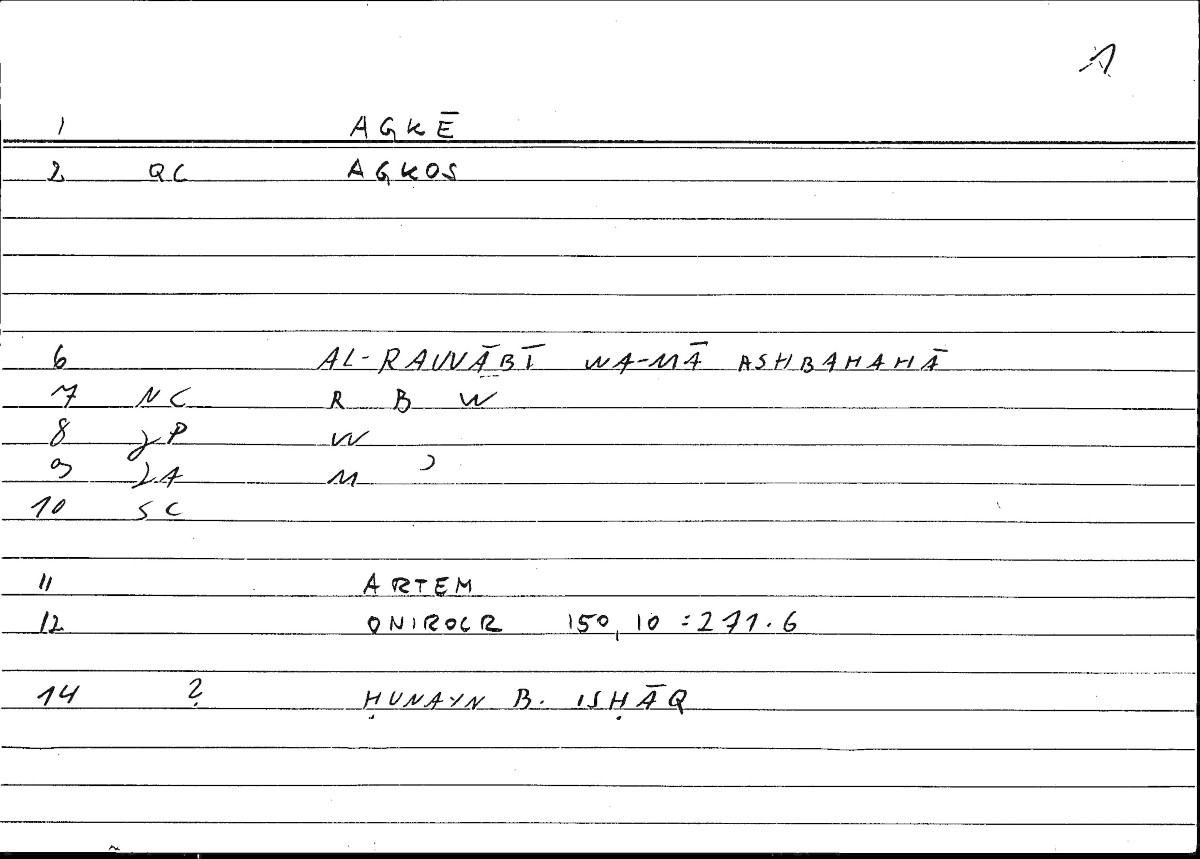 1
1 AGKĒ
2 QC AGKOS
6 AL-RAWĀBĪ WA-MĀ ASHBAHAHĀ
7 NC R B W
8 P W
9 A M ʾ
10 SC
11 ARTEM
12 ONIROCR 150,10 = 271.6
14 ? ḤUNAYN B. ISḤĀQ